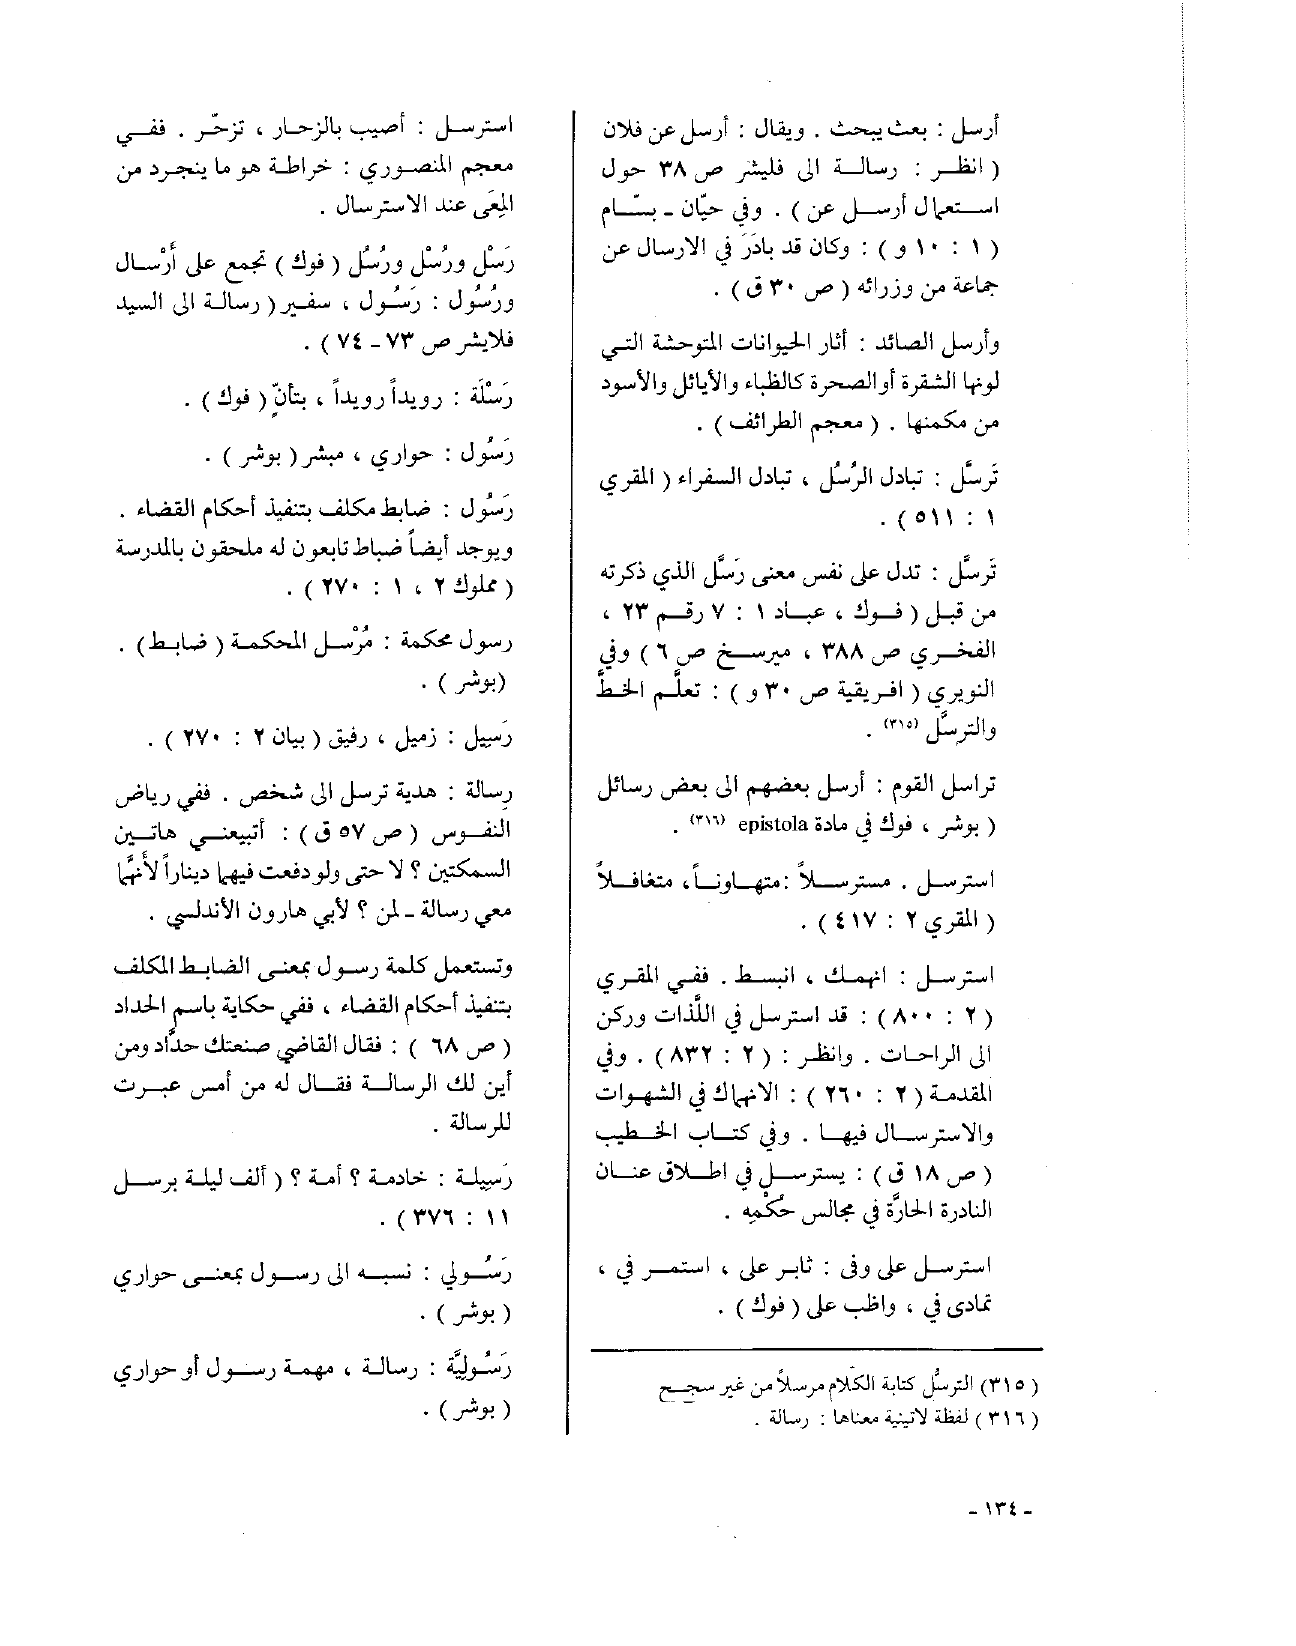 أرسل : بعث يبحث . ويقال : أرسل عن فلان
( انظـر : رسالـة الى فليشر ص ٣٨ حول
استعمال أرسـل عن ) . وفي حيّان ـ بسّـام
( ١ : ١٠ و ) : وكان قد بادَرَ في الارسال عن
جماعة من وزرائه ( ص ٣٠ ق ) .
وأرسل الصائد : أثار الحيوانات المتوحشة التـي
لونها الشقرة أو الصحرة كالظباء والأيائل والأسود
من مكمنها . ( معجم الطرائف ) .
تَرسَّل : تبادل الرُسُل ، تبادل السفراء ( المقري
١ : ٥١١ ) .
تَرسَّل : تدل على نفس معنى رَسَّل الذي ذكرته
من قبل ( فـوك ، عبـاد ١ : ٧ رقـم ٢٣ ،
الفخـري ص ٣٨٨ ، ميرسـخ ص ٦ ) وفي
النويري ( افريقية ص ٣٠ و ) : تعلَّـم الخـطَّ
والترسُّل (٣١٥) .
تراسل القوم : أرسل بعضهم الى بعض رسائل
( بوشر ، فوك في مادة epistola (٣١٦) .
استرسـل . مسترسـلاً :متهـاونـاً، متغافـلاً
( المقري ٢ : ٤١٧ ) .
استرسل : انهمك ، انبسط . ففي المقري
( ٢ : ٨٠٠ ) : قد استرسل في اللَّذات وركن
الى الراحات . وانظر : ( ٢ : ٨٣٢ ) . وفي
المقدمة ( ٢ : ٢٦٠ ) : الانهماك في الشهوات
والاسترسـال فيهـا . وفي كتـاب الخـطيب
( ص ١٨ ق ) : يسترسـل في اطـلاق عنـان
النادرة الحارَّة في مجالس حُكْمِه .
استرسـل على وفى : ثابر على ، استمـر في ،
تمادى في ، واظب على ( فوك ) .
( ٣١٥) الترسُّل كتابة الكلام مرسلاً من غير سجـع
( ٣١٦ ) لفظة لاتينية معناها : رسالة .
استرسـل : أصيب بالزحـار ، تزحّـر . ففـي
معجم المنصـوري : خراطـة هو ما ينجـرد من
المِعَى عند الاسترسال .
رَسْل ورُسْل ورُسُل ( فوك ) تجمع على أَرْسـال
ورُسُول : رَسُـول ، سفـير ( رسالـة الى السيد
فلايشر ص ٧٣ ـ ٧٤ ) .
رَسْلَة : رويداً رويداً ، بتأنٍّ ( فوك ) .
رَسُول : حواري ، مبشر ( بوشر ) .
رَسُول : ضابط مكلف بتنفيذ أحكام القضاء .
ويوجد أيضاً ضباط تابعون له ملحقون بالمدرسة
( مملوك ٢ ، ١ : ٢٧٠ ) .
رسول محكمة : مُرْسـل المحكمـة ( ضابـط ) .
( بوشر ) .
رَسِيل : زميل ، رفيق ( بيان ٢ : ٢٧٠ ) .
رِسالة : هدية ترسل الى شخص . ففي رياض
النفـوس ( ص ٥٧ ق ) : أتبيعنـي هاتـين
السمكتين ؟ لا حتى ولو دفعت فيها ديناراً لأنَّها
معي رسالة ـ لمن ؟ لأبي هارون الأندلسي .
وتستعمل كلمة رسـول بمعنـى الضابـط المكلف
بتنفيذ أحكام القضاء ، ففي حكاية باسم الحداد
( ص ٦٨ ) : فقال القاضي صنعتك حدَّاد ومن
أين لك الرسالـة فقـال له من أمس عبـرت
للرسالة .
رَسِيلـة : خادمة ؟ أمة ؟ ( ألف ليلـة برسـل
١١ : ٣٧٦ ) .
رَسُـولي : نسبـه الى رسـول بمعنـى حواري
( بوشر ) .
رَسُـوليَّة : رسالـة ، مهمـة رسـول أو حواري
( بوشر ) .
ـ ١٣٤ ـ